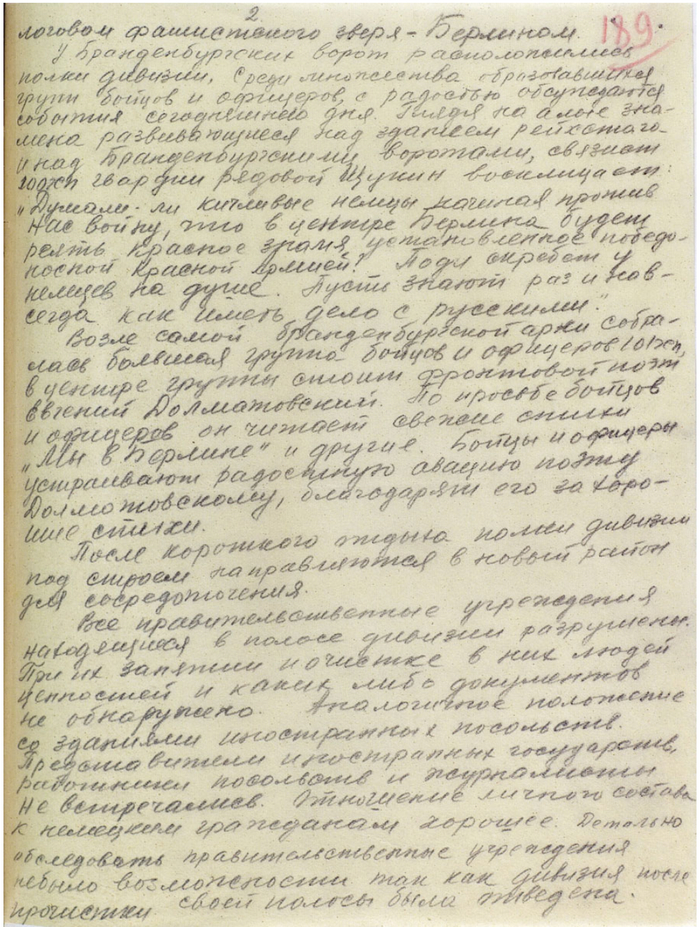 2
189
логовом фашистского зверя - Берлином.
У Бранденбургских ворот расположились
полки дивизии. Среди множества образовавшихся
групп бойцов и офицеров, с радостью обсуждаются
события сегодняшнего дня. Глядя на алые зна-
мена развивающиеся над зданием рейхстага
и над Бранденбургскими воротами, связист
101 гвардии рядовой Щукин восклицает:
"Думали-ли кичливые немцы начиная против
нас войну, что в центре Берлина будет
реять красное знамя установленное победо-
носной Красной Армией? Поди скребет у
немцев на душе. Пусть знают раз и нав-
сегда как иметь дело с русскими."
Возле самой бранденбургской арки собра-
лась большая группа бойцов и офицеров 101
в центре группы стоит фронтовой поэт
Евгений Долматовский. По просьбе бойцов
и офицеров он читает свежие стихи
"Мы в Берлине" и другие. Бойцы и офицеры
устраивают радостную овацию поэту
Долмотовскому, благодарят его за хоро-
шие стихи.
После короткого отдыха полки дивизии
под строем направляются в новый район
для сосредоточения.
Все правительственные учреждения
находящиеся в полосе дивизии разрушены.
При их занятии и очистке в них людей
ценностей и каких либо документов
не обнаружено. Аналогичное положение
со зданиями иностранных посольств.
Представители иностранных государств,
работники посольств и журналисты
не встречались. Отношение личного состава
к немецким гражданам хорошее. Детально
обследовать правительственные учреждения
небыло возможности так как дивизия после
прочистки своей полосы была отведена.